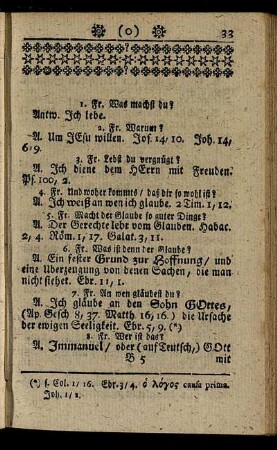 (o) 33
1. Fr. Was machst du?
Antw. Ich lebe.
2. Fr. Warum?
A. Um JEsu willen. Jos. 14/10. Joh. 14,
6. 9.
3. Fr. Lebst du vergnügt?
A. Ich diene dem HErrn mit Freuden.
Ps. 100, 2.
4. Fr. Und woher kommts/ daß dir so wohl ist?
A. Ich weiß an wen ich glaube. 2 Tim. 1, 12.
5. Fr. Macht der Glaube so guter Dinge?
A. Der Gerechte lebt vom Glauben. Habac.
2, 4. Röm. 1, 17. Galat. 3, 11.
6. Fr. Was ist denn der Glaube?
A. Ein fester Grund zur Hoffnung/ und
eine Uberzeugung von denen Sachen, die man
nicht siehet. Ebr. 11, 1.
7. Fr. An wen gläubest du?
A. Ich gläube an den Sohn GOttes,
(Ap. Gesch 8, 37. Matth. 16, 16.) die Ursache
der ewigen Seeligkeit. Ebr. 5, 9. (*)
8. Fr. Wer ist das?
A. Immanuel/ oder (auf Teutsch,) GOtt
B 5 mit
(*) s. Col. 1/ 16. Ebr. 3/4. ὁ λόγος causa prima.
Joh. 1/ 1.